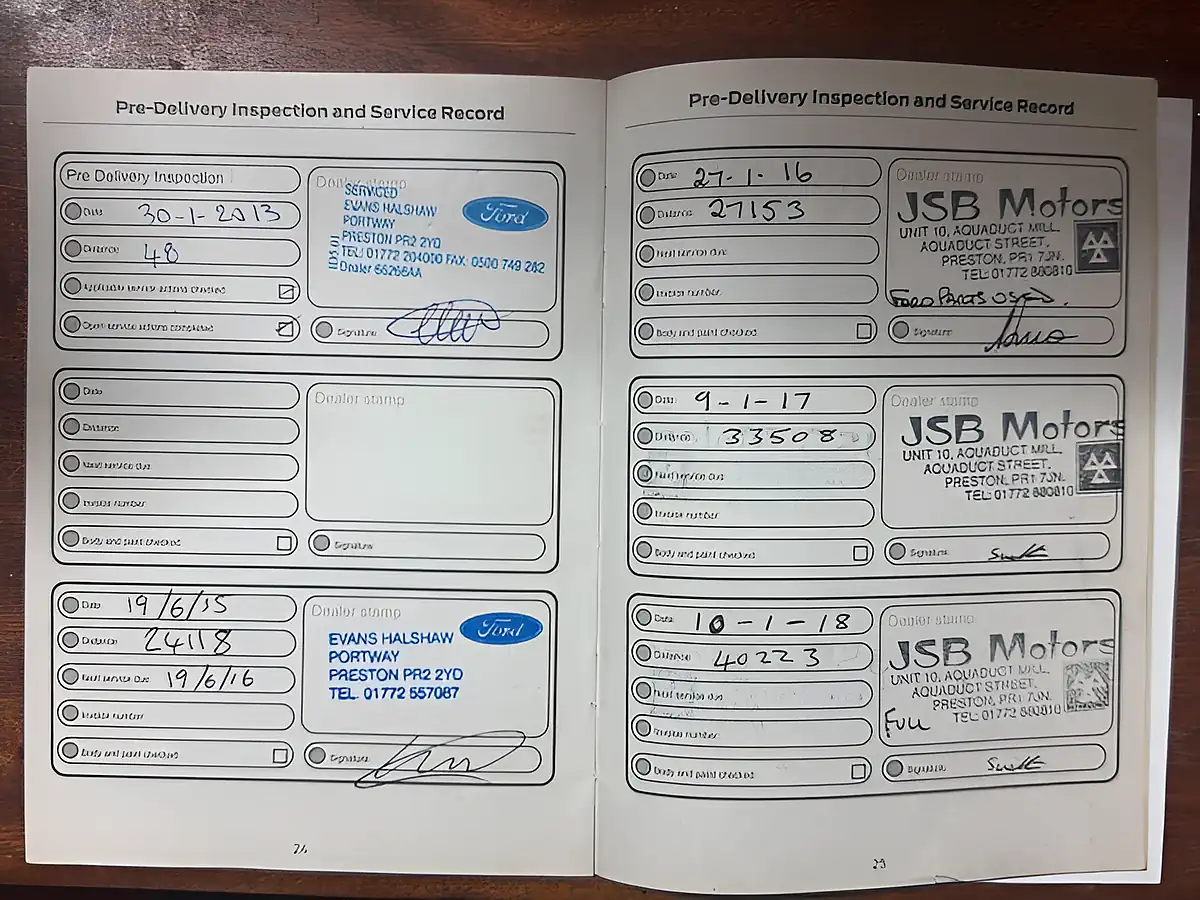 Pre-Delivery Inspection and Service Record
Pre Delivery Inspection
Date 30-1-2013
Distance 48
Dealer stamp
SERVICED
EVANS HALSHAW
PORTWAY
PRESTON PR2 2YD
TEL: 01772 204000 FAX: 0500 749 282
Dealer 66266AA
Ford
Signature
Date
Distance
Next service due
Invoice number
Body and paint checked
Dealer stamp
Signature
Date 19/6/15
Distance 24118
Next service due 19/6/16
Invoice number
Body and paint checked
Dealer stamp
EVANS HALSHAW
PORTWAY
PRESTON PR2 2YD
TEL. 01772 557087
Ford
Signature
24
Pre-Delivery Inspection and Service Record
Date 27-1-16
Distance 27153
Next service due
Invoice number
Body and paint checked
Dealer stamp
JSB Motors
UNIT 10, AQUADUCT MILL,
AQUADUCT STREET,
PRESTON, PR1 7JN.
TEL: 01772 880810
FORD PARTS USED.
Signature
Date 9-1-17
Distance 33508
Next service due
Invoice number
Body and paint checked
Dealer stamp
JSB Motors
UNIT 10, AQUADUCT MILL,
AQUADUCT STREET,
PRESTON, PR1 7JN.
TEL: 01772 880810
Signature
Date 10-1-18
Distance 40223
Next service due
Invoice number
Body and paint checked
Dealer stamp
JSB Motors
UNIT 10, AQUADUCT MILL,
AQUADUCT STREET,
PRESTON, PR1 7JN.
TEL: 01772 880810
FULL
Signature